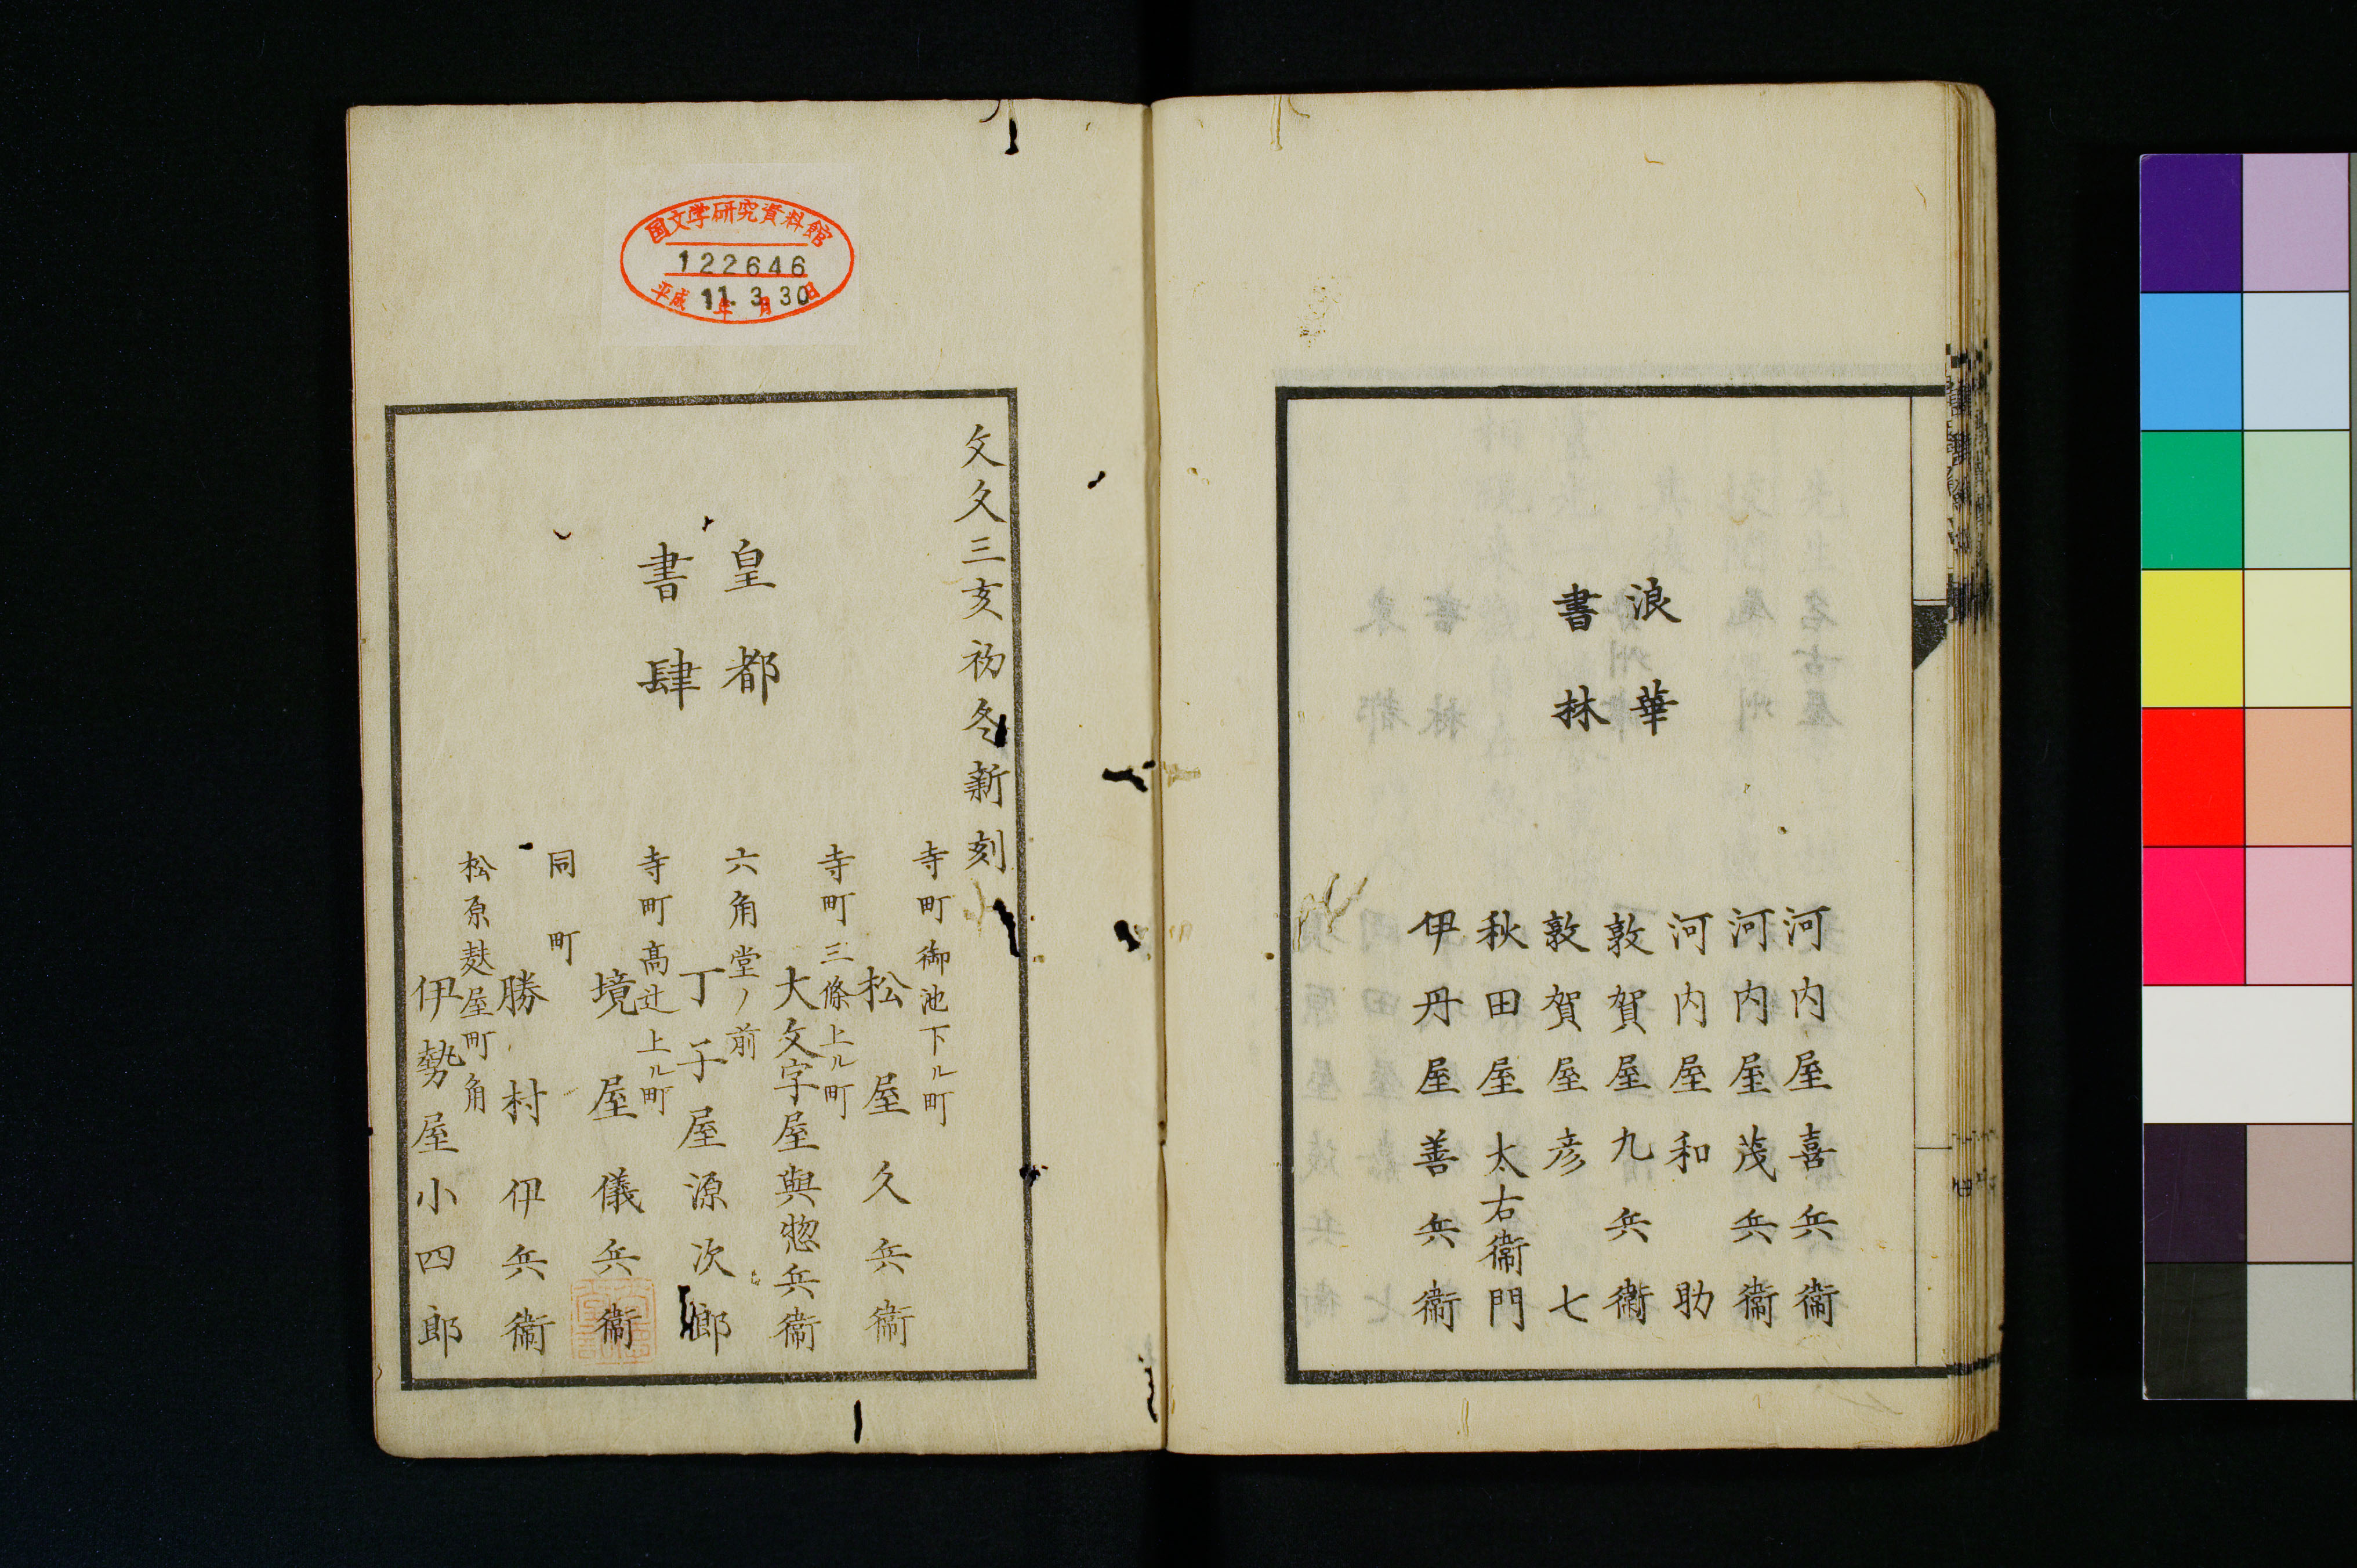 浪華
書林
河内屋喜兵衞
河内屋茂兵衞
河内屋和助
敦賀屋九兵衞
敦賀屋彦七
秋田屋太右衞門
伊丹屋善兵衞
国文学研究資料館
122646
平成11年3月30日
文久三亥初冬新刻
皇都
書肆
寺町御池下ル町
松屋久兵衞
寺町三條上ル町
大文字屋與惣兵衞
六角堂ノ前
丁子屋源次郎
寺町髙辻上ル町
境屋儀兵衞
同町
勝村伊兵衞
松原麸屋町角
伊勢屋小四郎